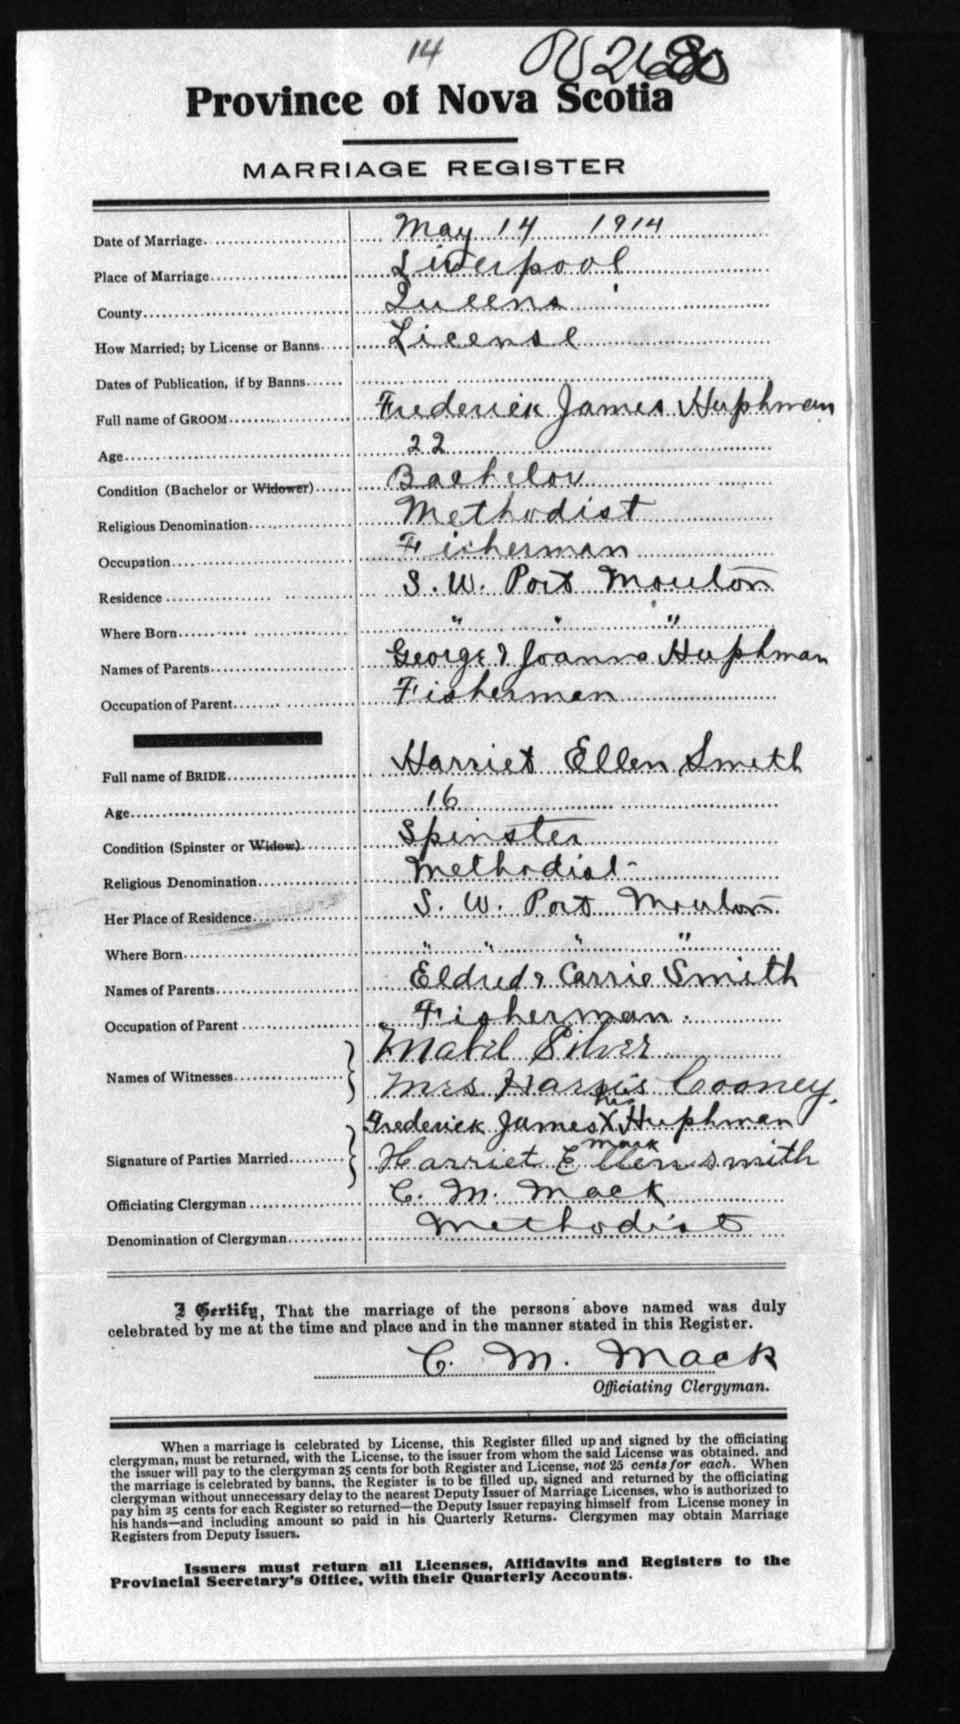 14
Province of Nova Scotia
MARRIAGE REGISTER
Date of Marriage May 14 1914
Place of Marriage Liverpool
County Queens
How Married; by License or Banns License
Dates of Publication, if by Banns
Full name of GROOM Frederick James Huphman
Age 22
Condition (Bachelor or Widower) Bachelor
Religious Denomination Methodist
Occupation Ficherman
Residence S. W. Port Mouton
Where Born " " "
Names of Parents George & Joanna Huphman
Occupation of Parent Fisherman
Full name of BRIDE Harriet Ellen Smith
Age 16
Condition (Spinster or Widow) Spinster
Religious Denomination Methodist
Her Place of Residence S. W. Port Mouton
Where Born " " " "
Names of Parents Eldred & Carrie Smith
Occupation of Parent Fisherman.
Names of Witnesses Mabel Silver
Mrs Harris Cooney.
Signature of Parties Married Frederick James his X mark Huphman
Harriet Ellen Smith
Officiating Clergyman C. M. Mack
Denomination of Clergyman Methodist
I Certify, That the marriage of the persons above named was duly
celebrated by me at the time and place and in the manner stated in this Register.
C. M. Mack
Officiating Clergyman.
When a marriage is celebrated by License, this Register filled up and signed by the officiating
clergyman, must be returned, with the License, to the issuer from whom the said License was obtained, and
the issuer will pay to the clergyman 25 cents for both Register and License, not 25 cents for each. When
the marriage is celebrated by banns, the Register is to be filled up, signed and returned by the officiating
clergyman without unnecessary delay to the nearest Deputy Issuer of Marriage Licenses, who is authorized to
pay him 25 cents for each Register so returned—the Deputy Issuer repaying himself from License money in
his hands—and including amount so paid in his Quarterly Returns. Clergymen may obtain Marriage
Registers from Deputy Issuers.
Issuers must return all Licenses, Affidavits and Registers to the
Provincial Secretary's Office, with their Quarterly Accounts.